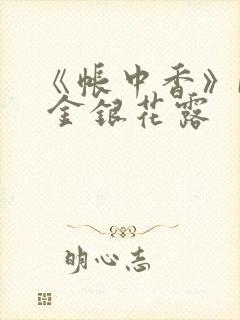 《帐中香》
金银花露
明心志